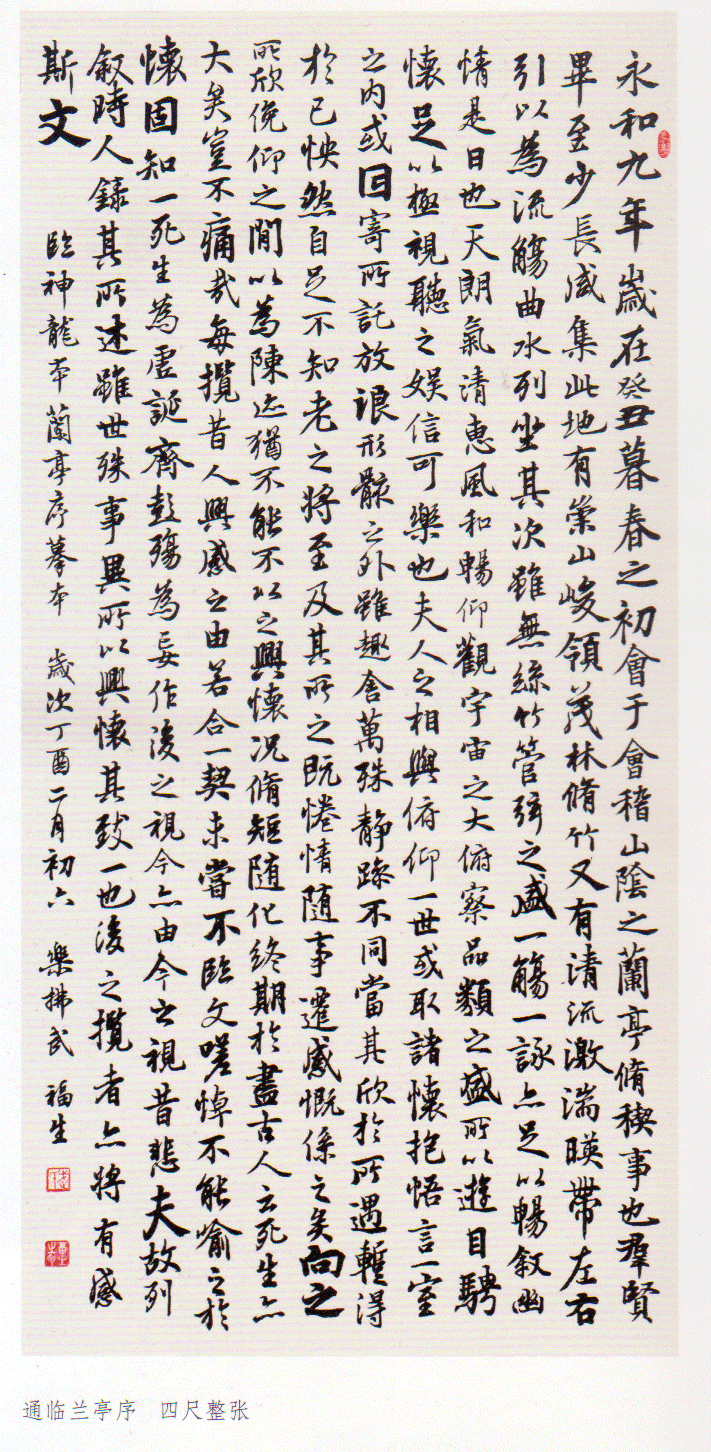 永和九年歲在癸丑暮春之初會于會稽山陰之蘭亭脩稧事也羣賢
畢至少長咸集此地有崇山峻領茂林脩竹又有清流激湍暎帶左右
引以為流觴曲水列坐其次雖無絲竹管弦之盛一觴一詠亦足以暢敘幽
情是日也天朗氣清惠風和暢仰觀宇宙之大俯察品類之盛所以遊目騁
懷足以極視聽之娛信可樂也夫人之相與俯仰一世或取諸懷抱悟言一室
之內或因寄所託放浪形骸之外雖趣舍萬殊靜躁不同當其欣於所遇暫得
於己怏然自足不知老之將至及其所之既惓情隨事遷感慨係之矣向之
所欣俛仰之閒以為陳迹猶不能不以之興懷況脩短隨化終期於盡古人云死生亦
大矣豈不痛哉每攬昔人興感之由若合一契未嘗不臨文嗟悼不能喻之於
懷固知一死生為虛誕齊彭殤為妄作後之視今亦由今之視昔悲夫故列
敘時人錄其所述雖世殊事異所以興懷其致一也後之攬者亦將有感
斯文 臨神龍本蘭亭序摹本 歲次丁酉二月初六 樂拂武 福生
通临兰亭序 四尺整张